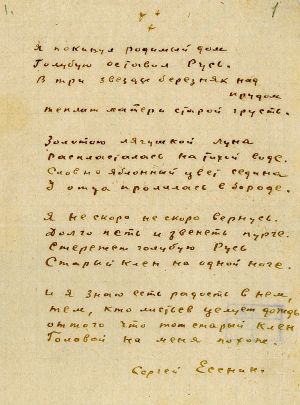 1.
1
Я покинул родимый дом
Голубую оставил Русь.
В три звезды березняк над
прудом
теплит матери старой грусть.
Золотою лягушкой луна
Распласталась на тихой воде.
Словно яблонный цвет седина
У отца пролилась в бороде.
Я не скоро не скоро вернусь.
Долго петь и звенеть пурге.
Стережет голубую Русь
Старый клен на одной ноге.
И я знаю есть радость в нем,
тем, кто листьев целует дождь
оттого что тот старый клен
Головой на меня похож.
Сергей Есенин.